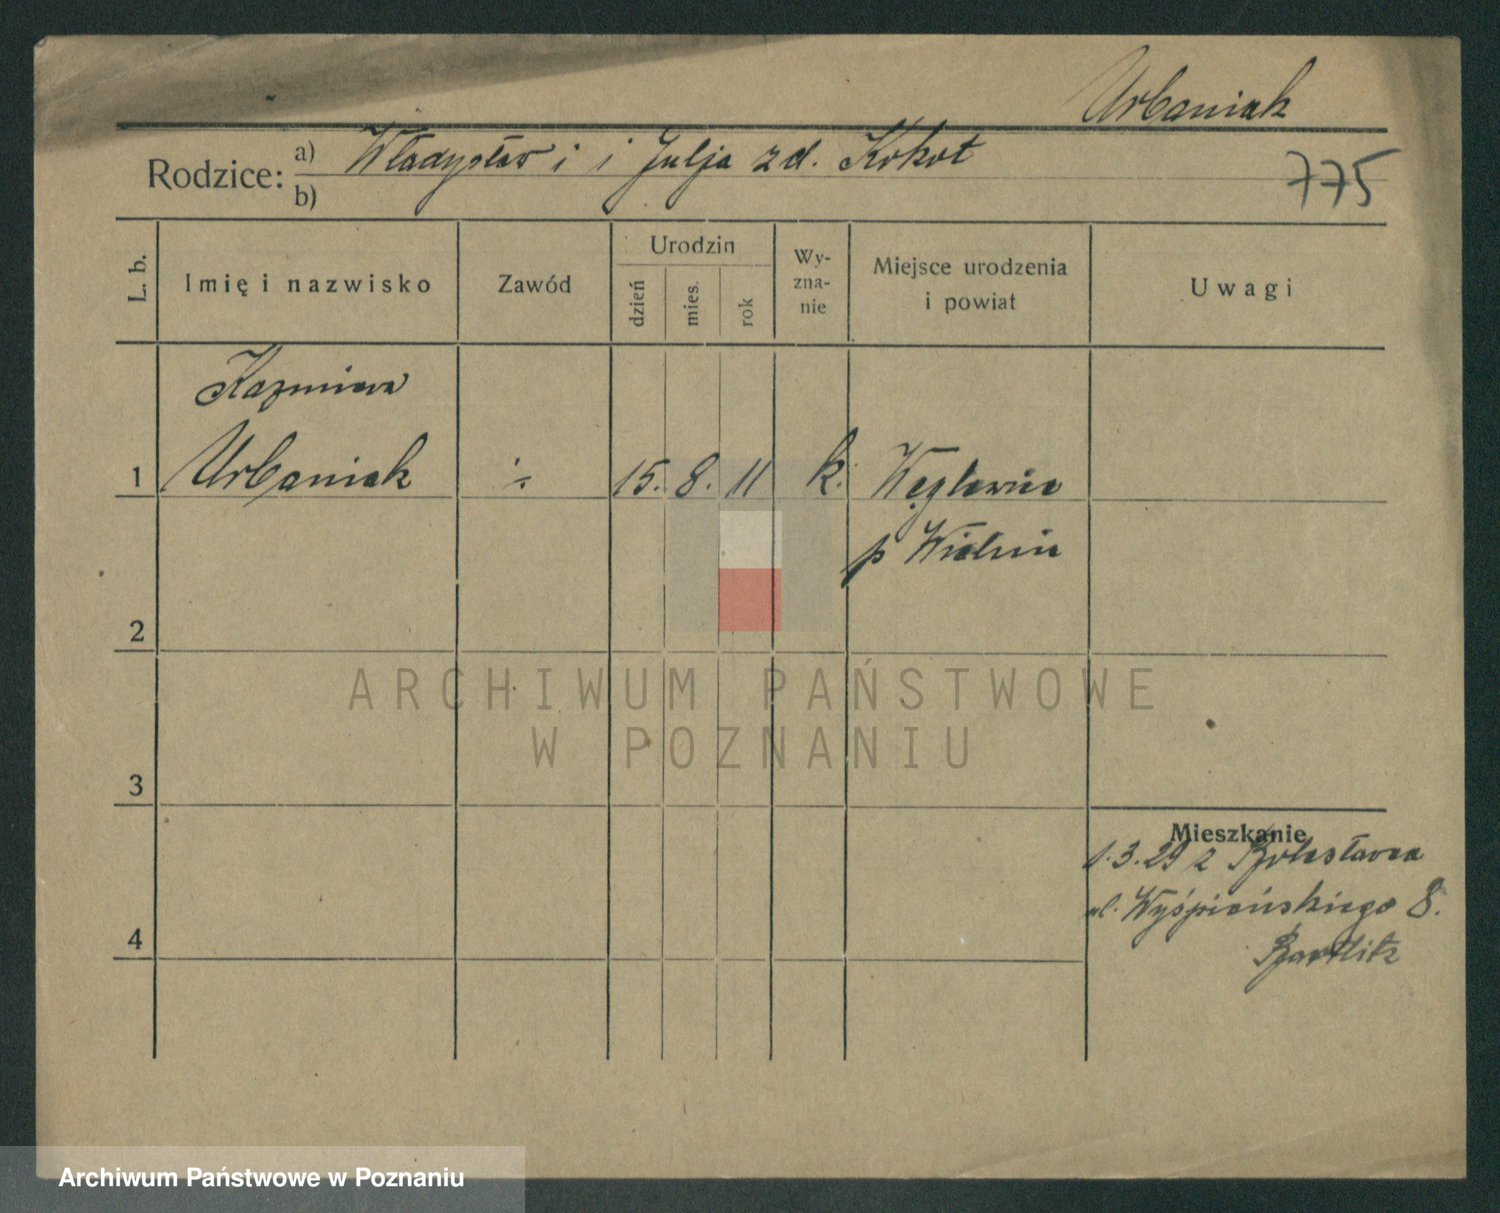 Urbaniak
Rodzice: a) Władysław i i Julja zd. Kokot
b)
775
L. b.
Imię i nazwisko
Zawód
Urodzin
dzień
mies.
rok
Wy-
zna-
nie
Miejsce urodzenia
i powiat
Uwagi
Kazmiera
1 Urbaniak ÷ 15. 8. 11 k. Węglewice
p Wieluń
2
ARCHIWUM PAŃSTWOWE
W POZNANIU
3
Mieszkanie
1.3.29 z Bolesławca
ul. Wyśpiańskiego 8.
4
Bartlitz
Archiwum Państwowe w Poznaniu